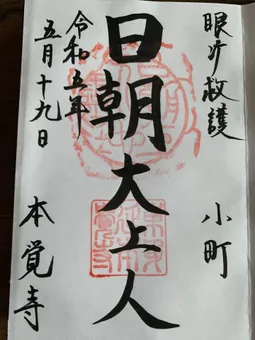 眼疒救護
小町
日朝大上人
令和五年
五月十九日
本覚寺